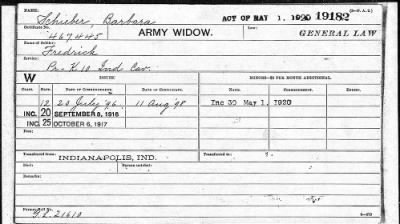 NAME:
Schieber, Barbara
ACT OF MAY 1, 1920 19182
Certificate No.
467445
ARMY WIDOW.
Law:
GENERAL LAW
Name of Soldier:
Fredrick
Service:
Pr. K 10 Ind Cav.
W
ISSUED
MINORS—$2 PER MONTH ADDITIONAL.
CLASS. RATE. DATE OF COMMENCEMENT. DATE OF CERTIFICATE. NAME. COMMENCING.
12 23 July '96 11 Aug '98 Inc 30 May 1, 1920
INC. 20 SEPTEMBER 8, 1916
INC. 25 OCTOBER 6, 1917
From:
Transferred from: Transferred to:
INDIANAPOLIS, IND.
Died:
Remarks:
21610